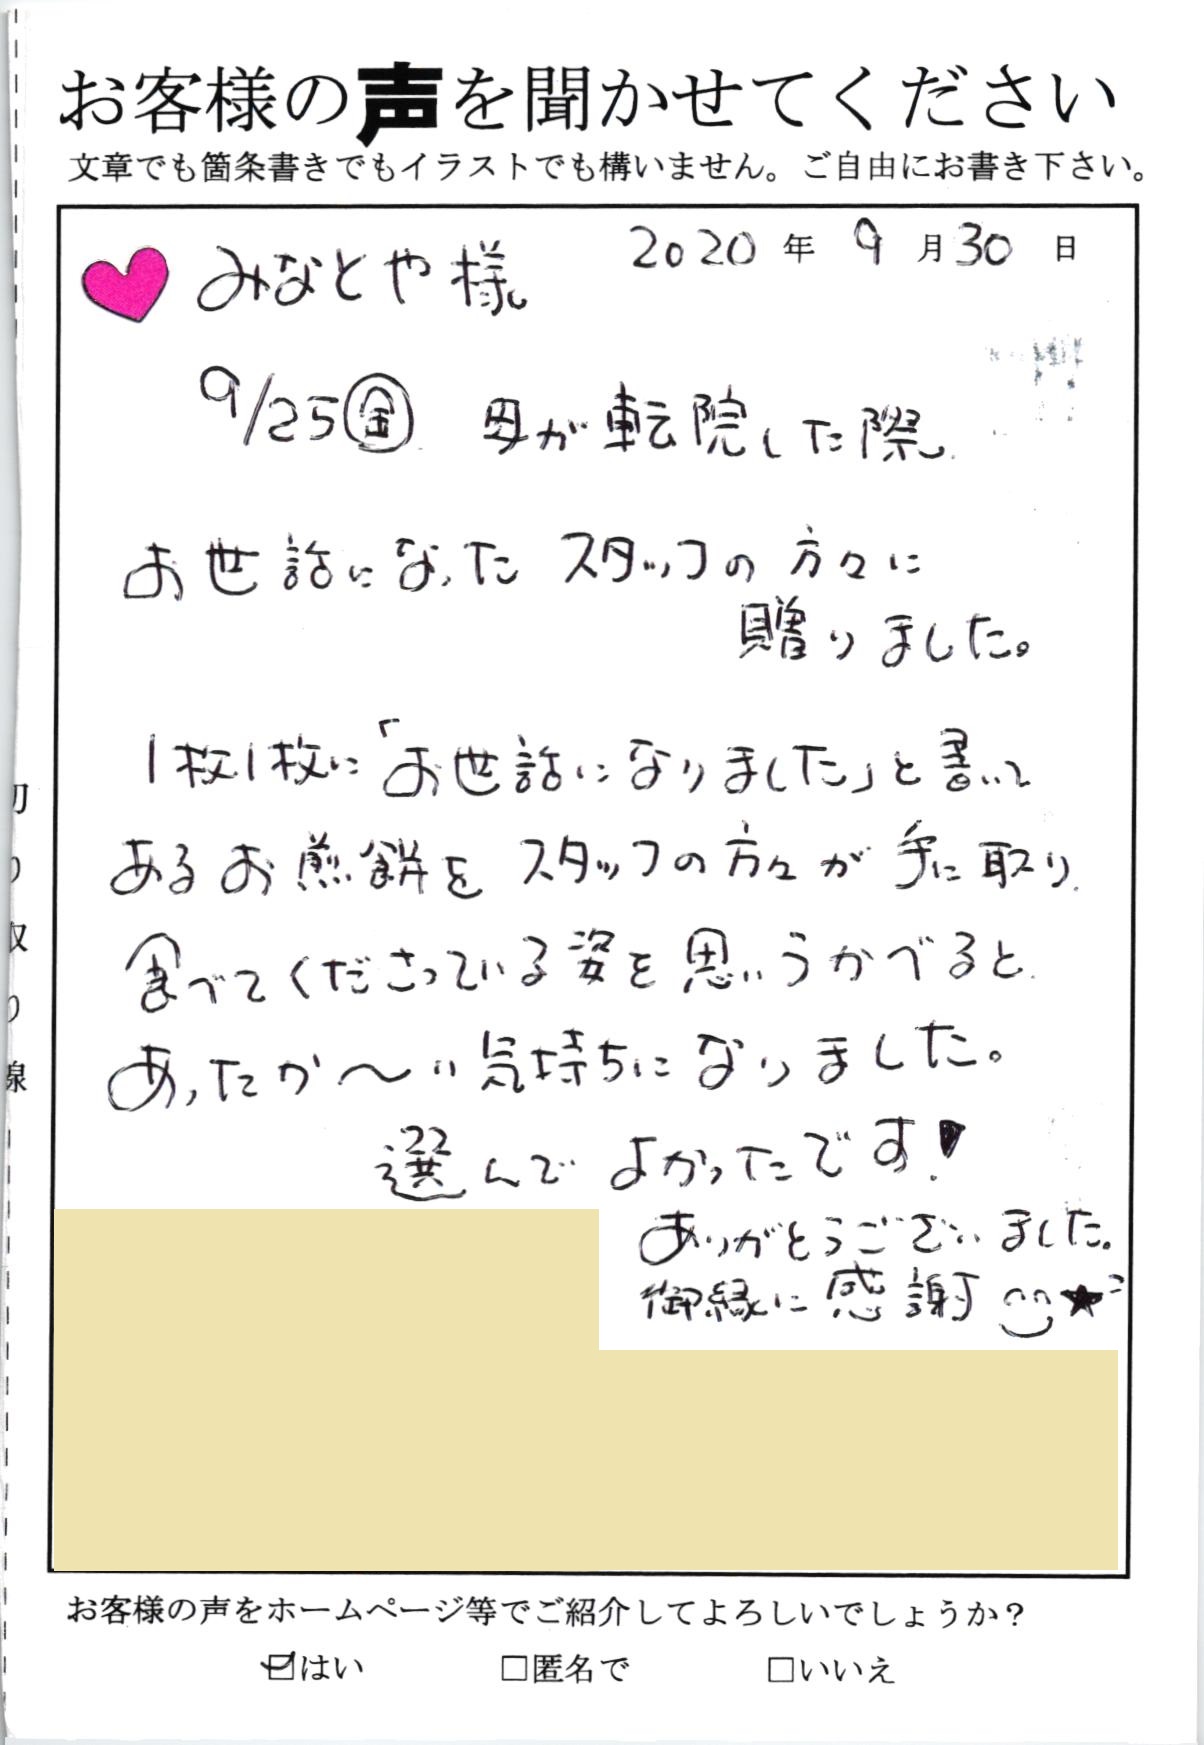 お客様の声を聞かせてください
文章でも箇条書きでもイラストでも構いません。ご自由にお書き下さい。
2020年9月30日
みなとや様
9/25㊎ 母が転院した際
お世話になった スタッフの方々に
贈りました。
1枚1枚に「お世話になりました」と書いて
あるお煎餅を スタッフの方々が 手に取り
食べてくださっている姿を思いうかべると
あったか〜い気持ちになりました。
選んで よかったです!
ありがとうございました。
御縁に感謝
お客様の声をホームページ等でご紹介してよろしいでしょうか?
☑はい □匿名で □いいえ
切り取り線